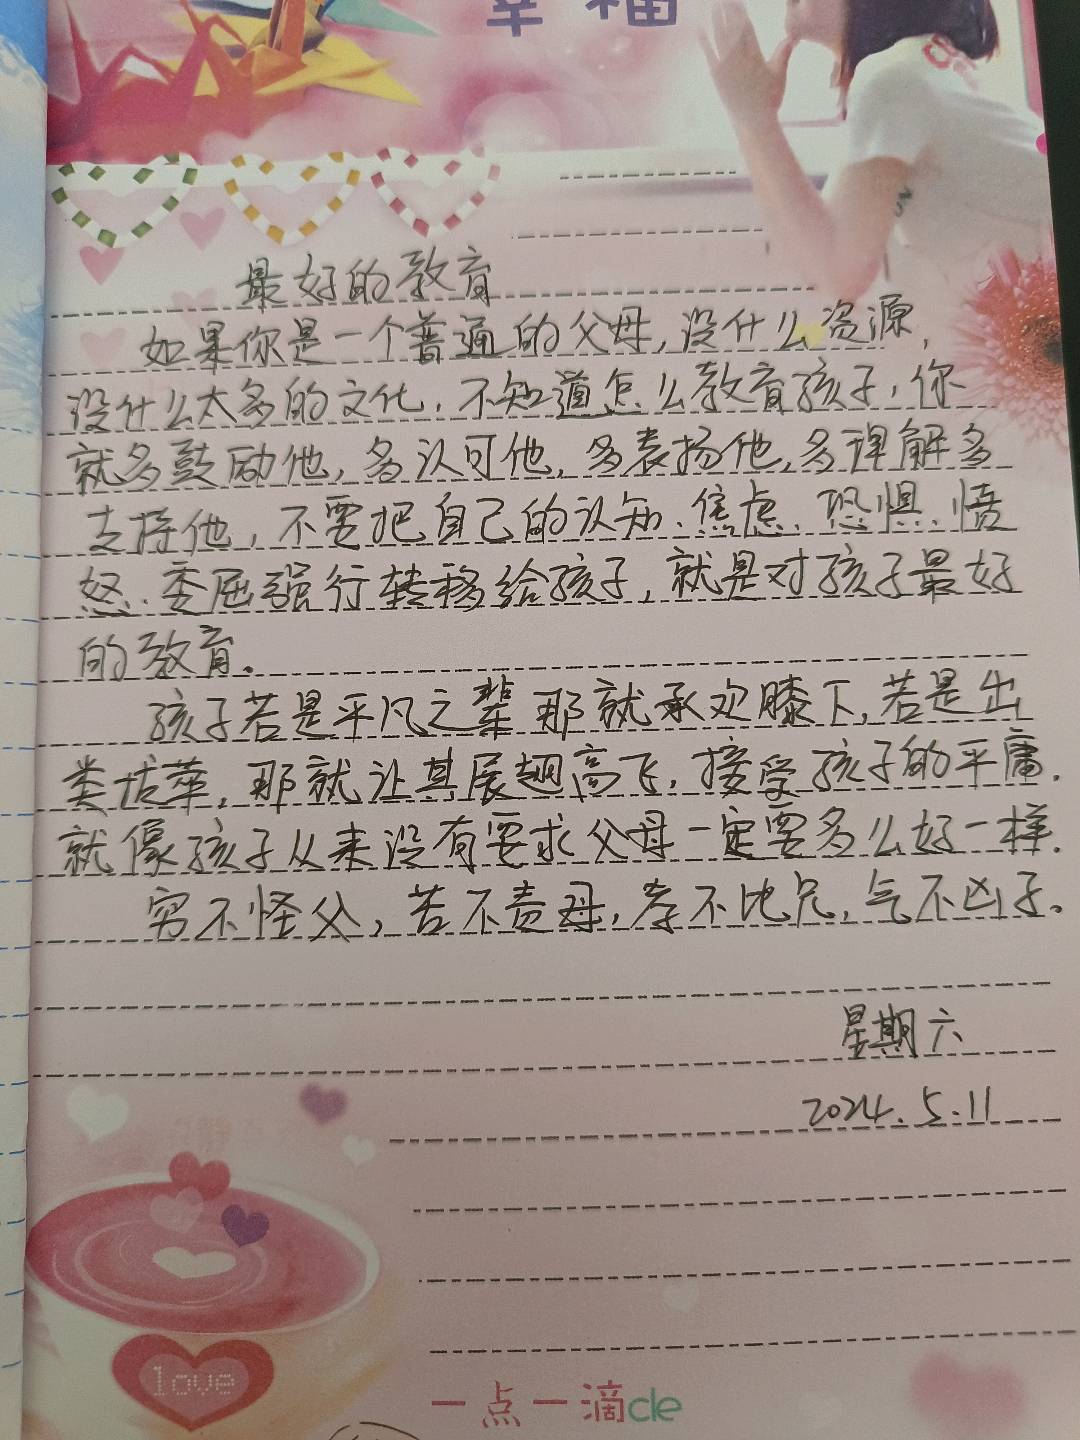 幸福
最好的教育
如果你是一个普通的父母,没什么资源,
没什么太多的文化,不知道怎么教育孩子,你
就多鼓励他,多认可他,多表扬他,多理解多
支持他,不要把自己的认知、焦虑、恐惧、愤
怒、委屈强行转移给孩子,就是对孩子最好
的教育。
孩子若是平凡之辈 那就承欢膝下,若是出
类拔萃,那就让其展翅高飞,接受孩子的平庸,
就像孩子从来没有要求父母一定要多么好一样.
穷不怪父,苦不责母,孝不比兄,气不凶子。
星期六
2024.5.11
love
一点一滴cle